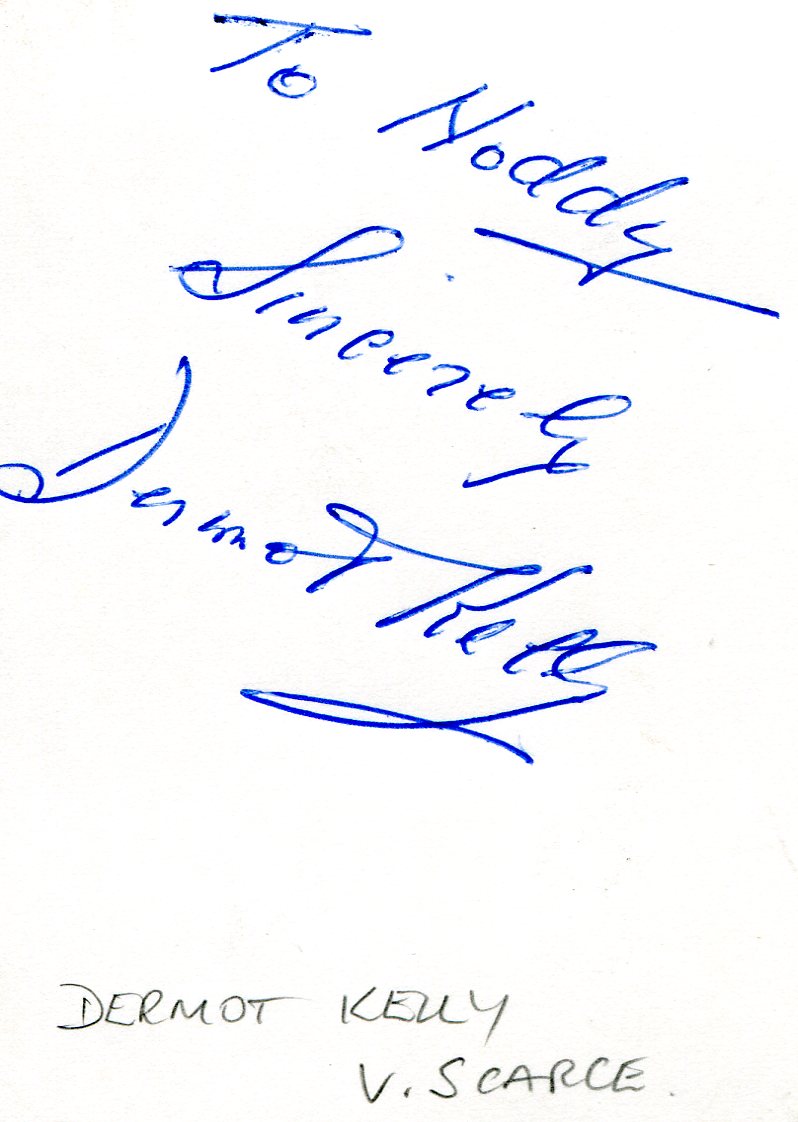 To Noddy
Sincerely
Dermot Kelly
DERMOT KELLY
V. SCARCE.